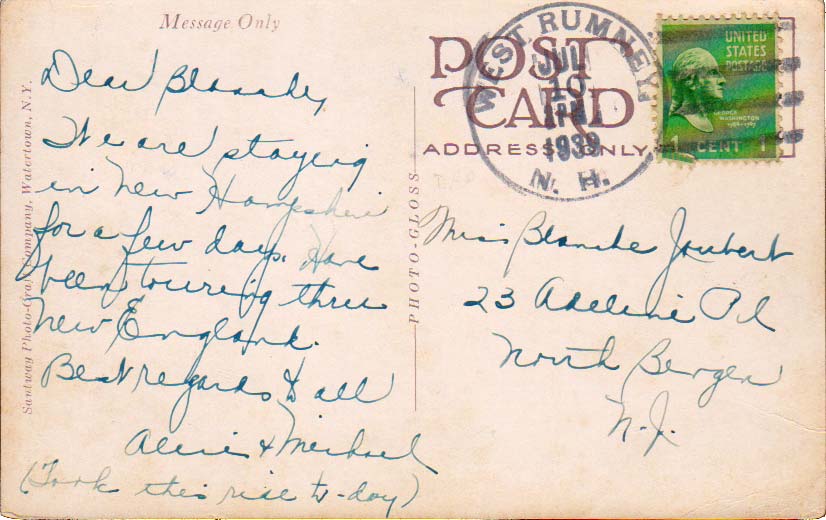 Message Only
POST
CARD
ADDRESS ONLY
WEST RUMNEY,
JUL
10
1939
N. H.
UNITED
STATES
POSTAGE
GEORGE
WASHINGTON
1 CENT 1
Santway Photo-Craft Company, Watertown, N.Y.
PHOTO-GLOSS
Dear Blanche,
We are staying
in New Hampshire
for a few days. Have
been touring thru
New England.
Best regards to all
& Michael
(Took this ride to-day)
Miss Blanche Joubert
23 Adeline Pl
North Bergen
N.J.